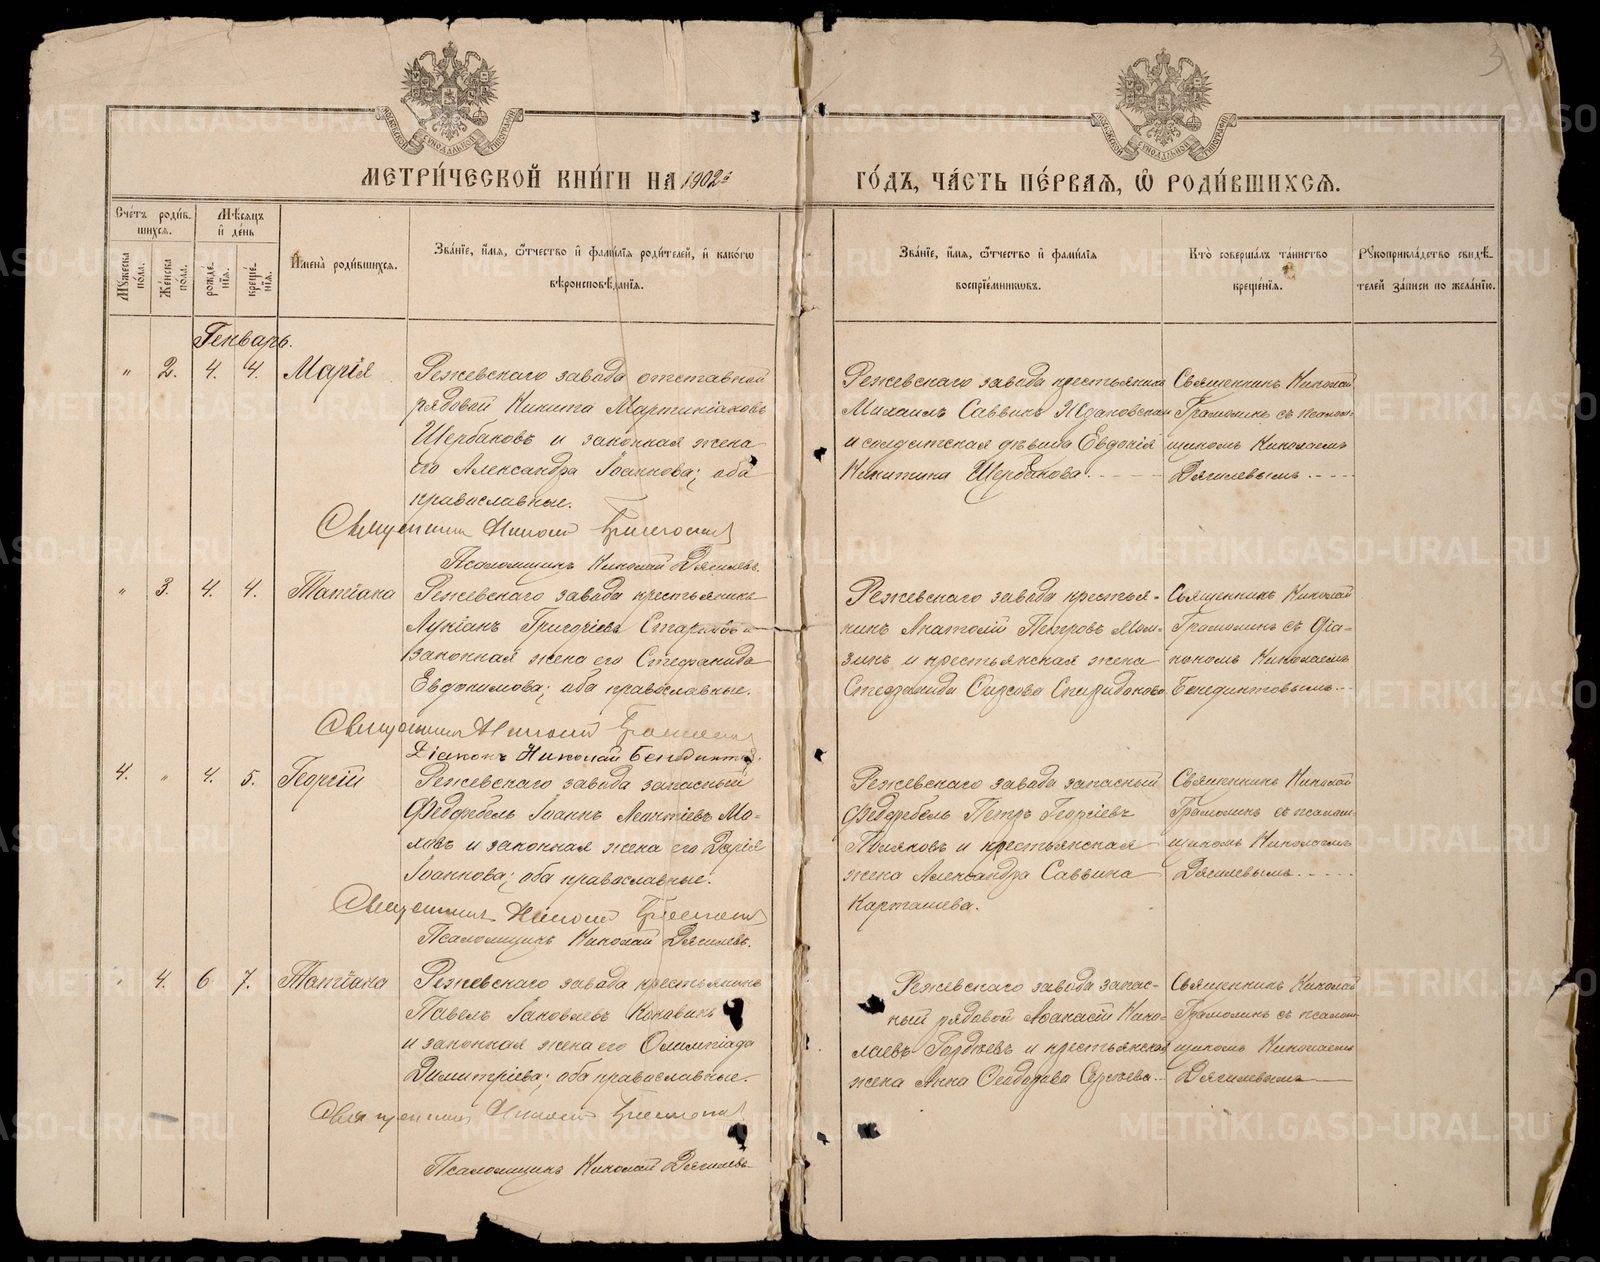 МЕТРИ́ЧЕСКОЙ КНИ́ГИ НА 1902й ГО́ДЪ, ЧА́СТЬ ПЕ́РВАЯ, Ѡ РОДИ́ВШИХСЯ.
Сче́тъ роди́вшихся.
Мꙋ́жеска по́ла.
Же́нска по́ла.
Мѣ́сяцъ и де́нь
рожде́нїя.
креще́нїя.
Имена̀ роди́вшихся.
Зва́нїе, и́мя, ѻ́тчество и фами́лїя роди́телей, и како́гѡ
вѣроисповѣ́данїя.
Зва́нїе, и́мя, ѻ́тчество и фами́лїя
воспрїе́мникѡвъ.
Кто̀ соверша́лъ та́инство
креще́нїя.
Рꙋкоприкла́дство свидѣ́телей за́писи по жела́нїю.
Генварь.
" 2. 4. 4. Марія
Режевскаго завода отставной
рядовой Никита Мартиніановъ
Щербаковъ и законная жена
его Александра Іоаннова; оба
православные.
Священникъ Николай Грамолинъ
Псаломщикъ Николай Дягилевъ.
Режевскаго завода крестьянинъ
Михаилъ Саввинъ Ждановскихъ
и солдатская дѣвица Евдокія
Никитина Щербакова.
Священникъ Николай
Грамолинъ съ псалом-
щикомъ Николаемъ
Дягилевымъ
" 3. 4. 4. Татіана
Режевскаго завода крестьянинъ
Лукіанъ Григоріевъ
законная жена его Стефанида
Евдокимова; оба православные.
Священникъ Николай Грамолинъ
Діаконъ Николай
Режевскаго завода крестья-
нинъ Анатолій Петровъ Мам-
зинъ и крестьянская жена
Стефанида
Священникъ Николай
Грамолинъ съ діа-
кономъ Николаемъ
4. " 4. 5. Георгій
Режевскаго завода запасный
Фелдфебель Іоаннъ Леонтіевъ Мо-
ховъ и законная жена его Дарія
Іоаннова; оба православные.
Священникъ Николай Грамолинъ
Псаломщикъ Николай Дягилевъ.
Режевскаго завода запасный
Фелдфебель Петръ Георгіевъ
Поляковъ и крестьянская
жена Александра Саввина
Карташева.
Священникъ Николай
Грамолинъ съ псалом-
щикомъ Николаемъ
Дягилевымъ
" 4. 6 7. Татіана
Режевскаго завода крестьянинъ
Павелъ Іаковлевъ
и законная жена его Олимпіада
Димитріева; оба православные.
Священникъ Николай Грамолинъ
Псаломщикъ Николай Дягилевъ
Режевскаго завода запас-
ный рядовой Аѳанасій Нико-
лаевъ Гордѣевъ и крестьянская
жена Анна Ѳеодорова Сергѣева
Священникъ Николай
Грамолинъ съ псалом-
щикомъ Николаемъ
Дягилевымъ
METRIKI.GASO-URAL.RU